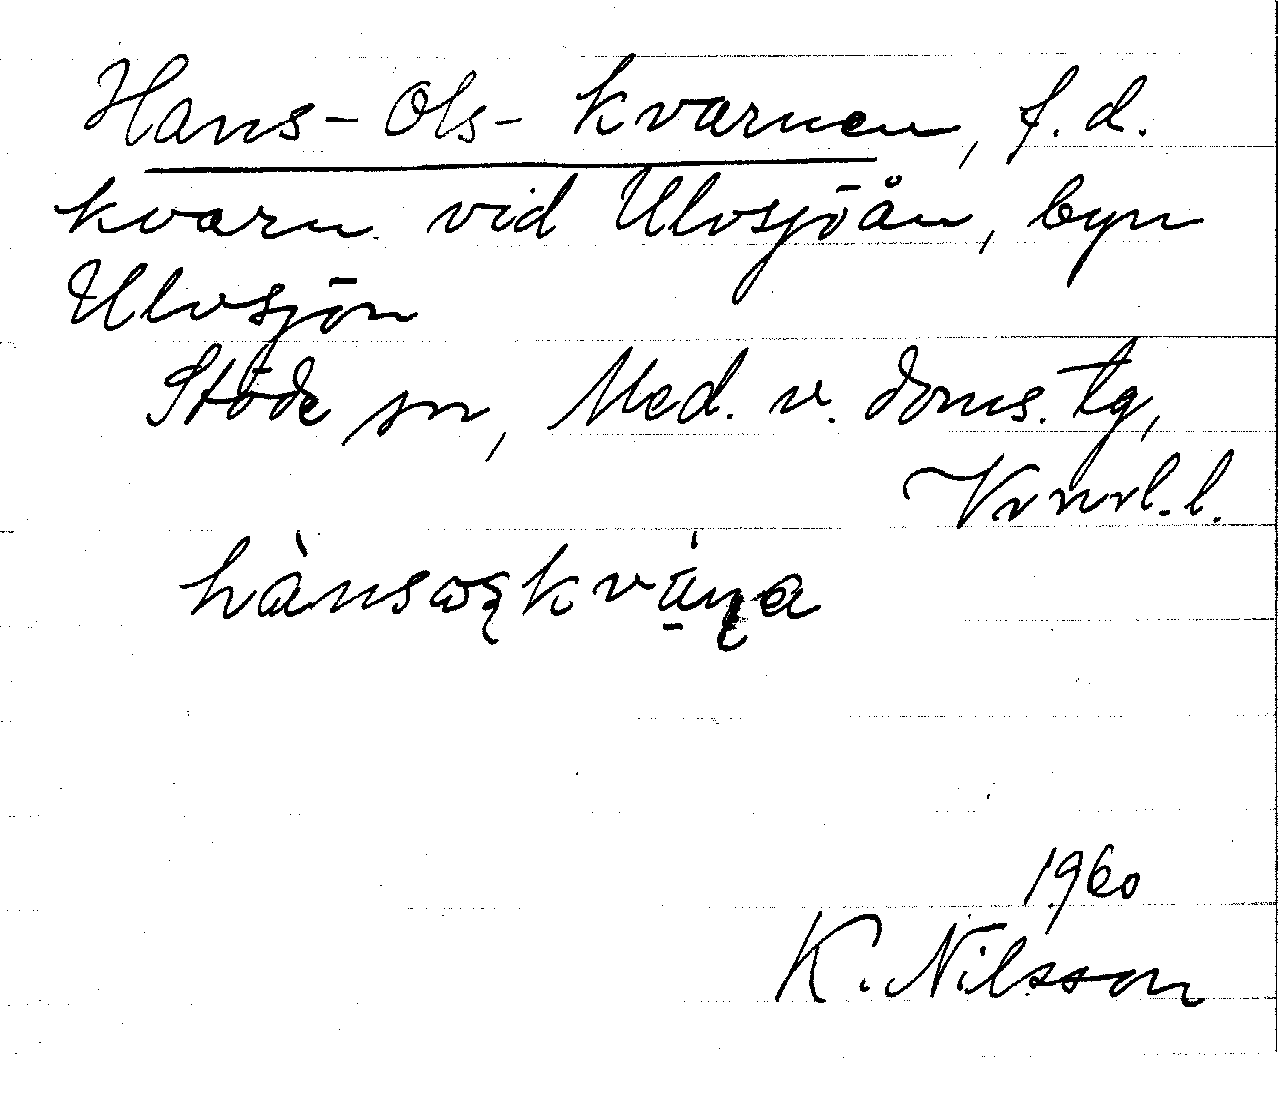 Hans-Ols-kvarnen, f.d.
kvarn vid Ulvsjöån, byn
Ulvsjön
Stöde sn, Med. v. doms. tg,
Vrnrl. l.
1960
K. Nilsson